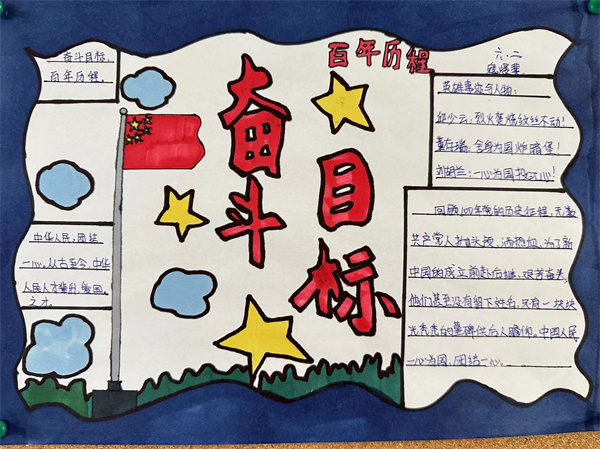 百年历程
奋斗
目标
六.二
奋斗目标，
百年历程。
中华人民，团结
一心。从古至今，中华
人民人才辈出，爱国
之才。
英雄事迹令人
邱少云，烈火焚烧纹丝不动！
董存瑞，舍身为国炸暗堡！
刘胡兰：一心为国
回顾100年的历史征程，无数
共产党人抛头颅，洒热血，为了新
中国的成立前赴后继，艰苦奋斗，
他们甚至没有留下姓名，只有一块块
光秃秃的墓碑供后人瞻仰。中国人民
一心为国，团结一心。